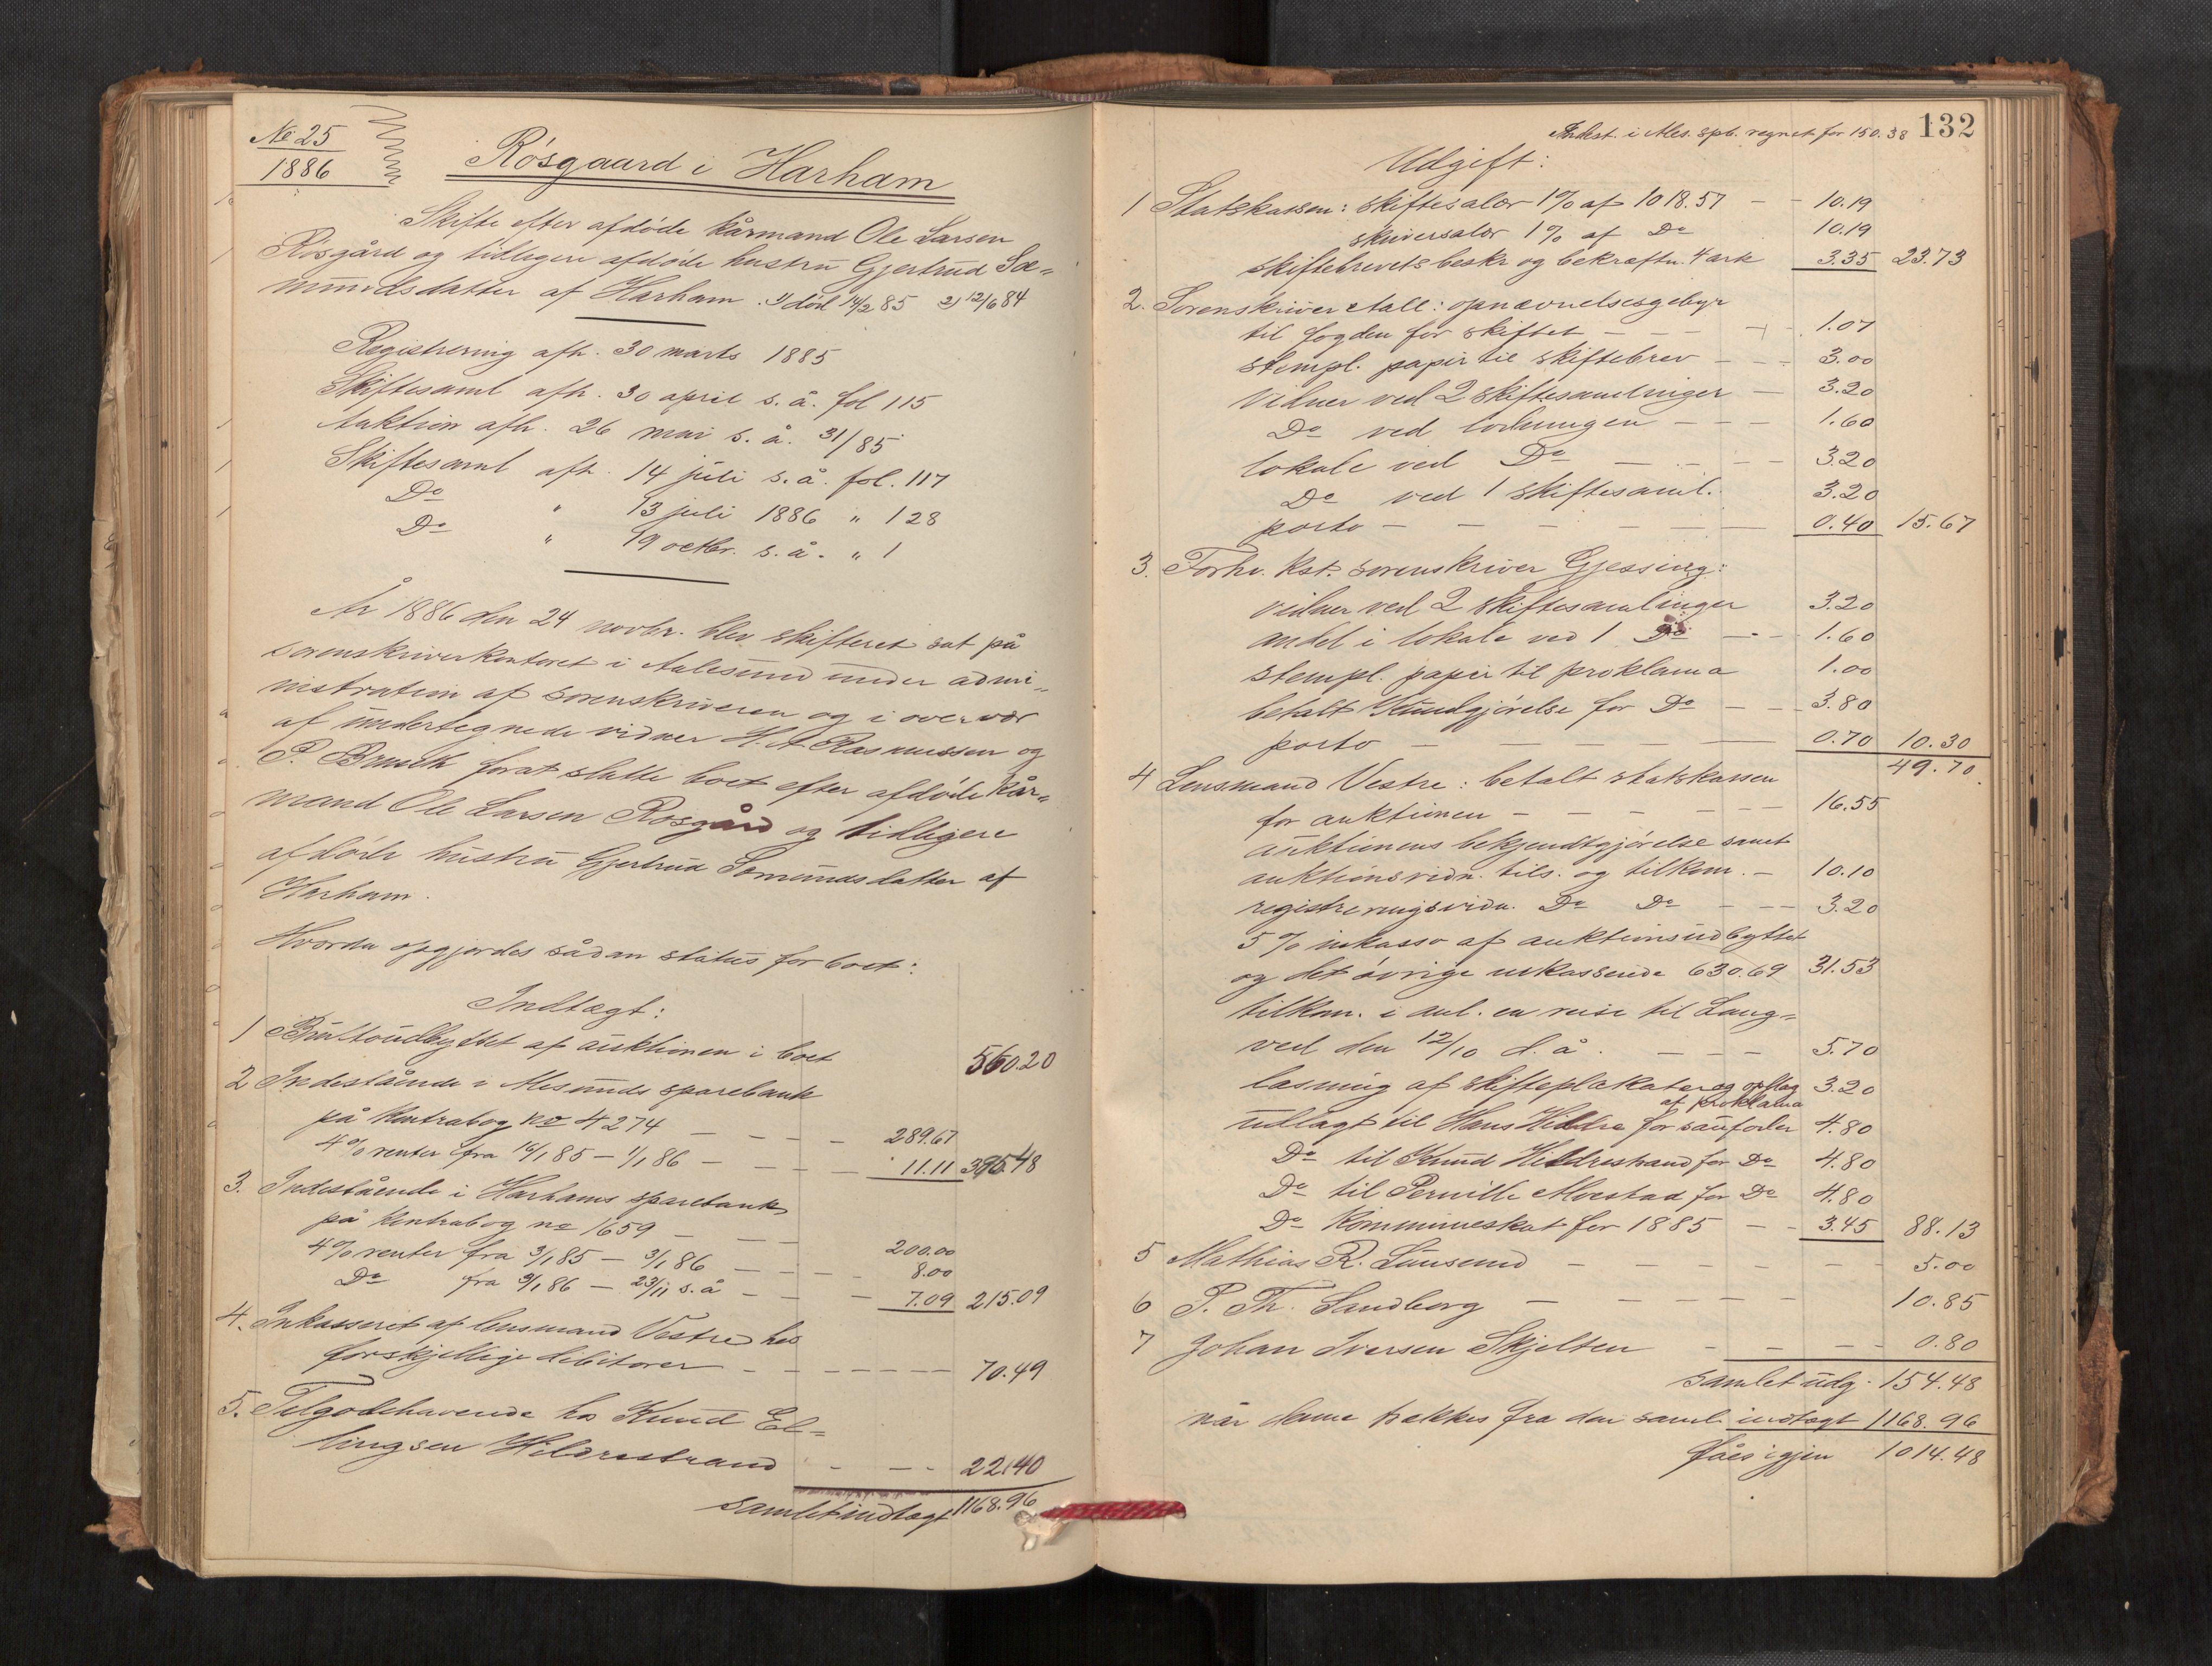 No 25
1886
Røsgaard i Harham
Skifte efter afdøde kårmand Ole Larsen
Røsgård og tidligere afdøde hustru Gjertrud Sæ=
mundsdatter af Harham. 1) død 14/2 85 2) 12/6 84
Registrering afh. 30 marts 1885
Skiftesaml afh. 30 april s. å. fol 115
Auktion afh. 26 mai s. å. 31/85
Skiftesaml afh. 14 juli s. å. fol. 117
Do " 13 juli 1886 " 128
Do " 19 octbr. s. å. " 1
År 1886 den 24 novbr. blev skifteret sat på
sorenskriverkontoret i Aalesund under admi=
nistration af sorenskriveren og i overvær
af undertegnede vidner H. A. Rasmussen og
P. Brusch forat slutte boet efter afdøde kår=
mand Ole Larsen Røsgård og tidligere
afdøde hustru Gjertrud Sæmundsdatter af
Harham.
Hvorda opgjordes sådan status for boet:
Indtægt:
1 Bruttoudbyttet af auktionen i boet 560.20
2 Indestående i Alesunds sparebank
på kontrabog No 4274 – – – – 289.67
4% renter fra 16/1 85 – 1/1 86 – – – – 11.11 48
3. Indestående i Harhams sparebank
på kontrabog no 1659 – – – 200.00
4% renter fra 3/1 85 – 3/1 86 – – – – 8.00
Do fra 3/1 86 – 23/11 s. å – – – 7.09 215.09
4. Inkasseret af lensmand Vestre hos
forskjellige debitorer – – – – – – 70.49
5. Tilgodehavende hos Knud El=
lingsen Hildrestrand – – – 22.40
samlet indtægt 1168.96
Indest. i Ales. spb. regnet for 150.38 132
Udgift:
1 Statskassen: skiftesalær 1% af 1018.57 – – 10.19
skriversalær 1% af Do 10.19
skiftebrevets beskr og bekræftn. 4 ark 3.35 23.73
2. Sorenskriver Aall: opnævnelsesgebyr
til fogden for skiftet – – – – 1.07
stempl. papir til skiftebrev – – – 3.00
Vidner ved 2 skiftesamlinger – 3.20
Do ved lodningen – – – 1.60
lokale ved Do – – – – 3.20
Do ved 1 skiftesaml. 3.20
porto – – – – – – 0.40 15.67
3. Forhv. kst. sorenskriver Gjessing:
vidner ved 2 skiftesamlinger 3.20
andel i lokale ved 1 Do – – – 1.60
stempl. papir til proklama 1.00
betalt kundgjørelse for Do – – – 3.80
porto – – – – – – 0.70 10.30
49.70
4 Lensmand Vestre: betalt statskassen
for auktionen – – – – – – 16.55
auktionens bekjendtgjørelse samt
auktionsvidn. tils. og tilkom. – 10.10
registreringsvidn. Do Do – – – 3.20
5% inkasso af auktionsudbyttet
og det øvrige inkasserede 630.69 31.53
tilkom. i anl. en reise til Laug=
ved den 12/10 d. å. – – – 5.70
læsning af skifteplakater og opslag 3.20
af proklama
udlagt til Hans Hildre for sauefoder 4.80
Do til Knud Hildrestrand for Do 4.80
Do til Pernille Alvestad for Do 4.80
Do kommuneskat for 1885 – – 3.45 88.13
5 Mathias R. Lunsund – – – – – – 5.00
6 P. Th. Sandberg – – – – – – 10.85
7 Johan Iversen Skjelten – – – – 0.80
samlet udg. 154.48
når denne trækkes fra den saml. indtægt 1168.96
fåes igjen 1014.48